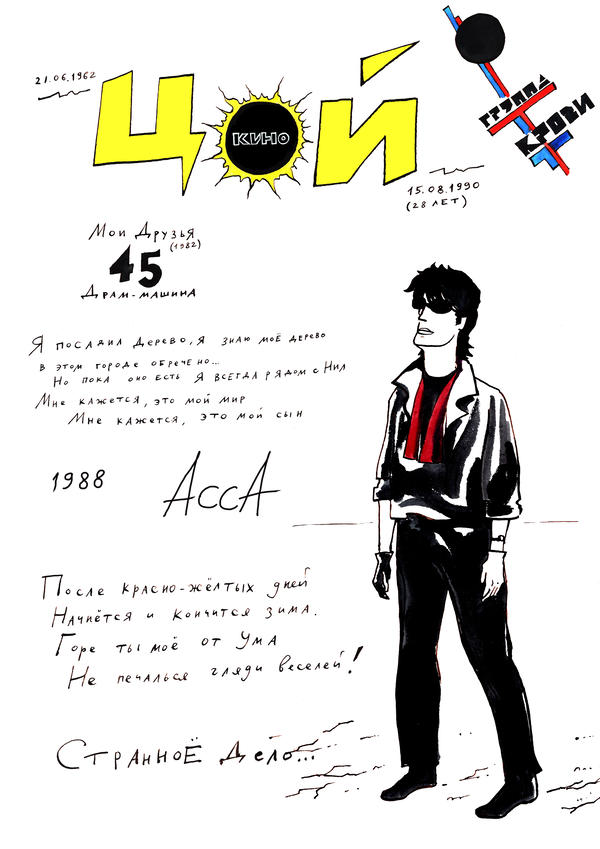 21.06.1962
ЦОЙ
КИНО
ГРУППА
КРОВИ
15.08.1990
(28 ЛЕТ)
Мои Друзья
(1982)
45
Драм-машина
Я посадил Дерево, я знаю моё дерево
в этом городе обречено...
Но пока оно есть Я всегда рядом с Ним
Мне кажется, это мой мир
Мне кажется, это мой сын
1988
АссА
После красно-жёлтых дней
Начнётся и кончится зима.
Горе ты моё от Ума
Не печалься гляди веселей!
СтранноЁ Дело...